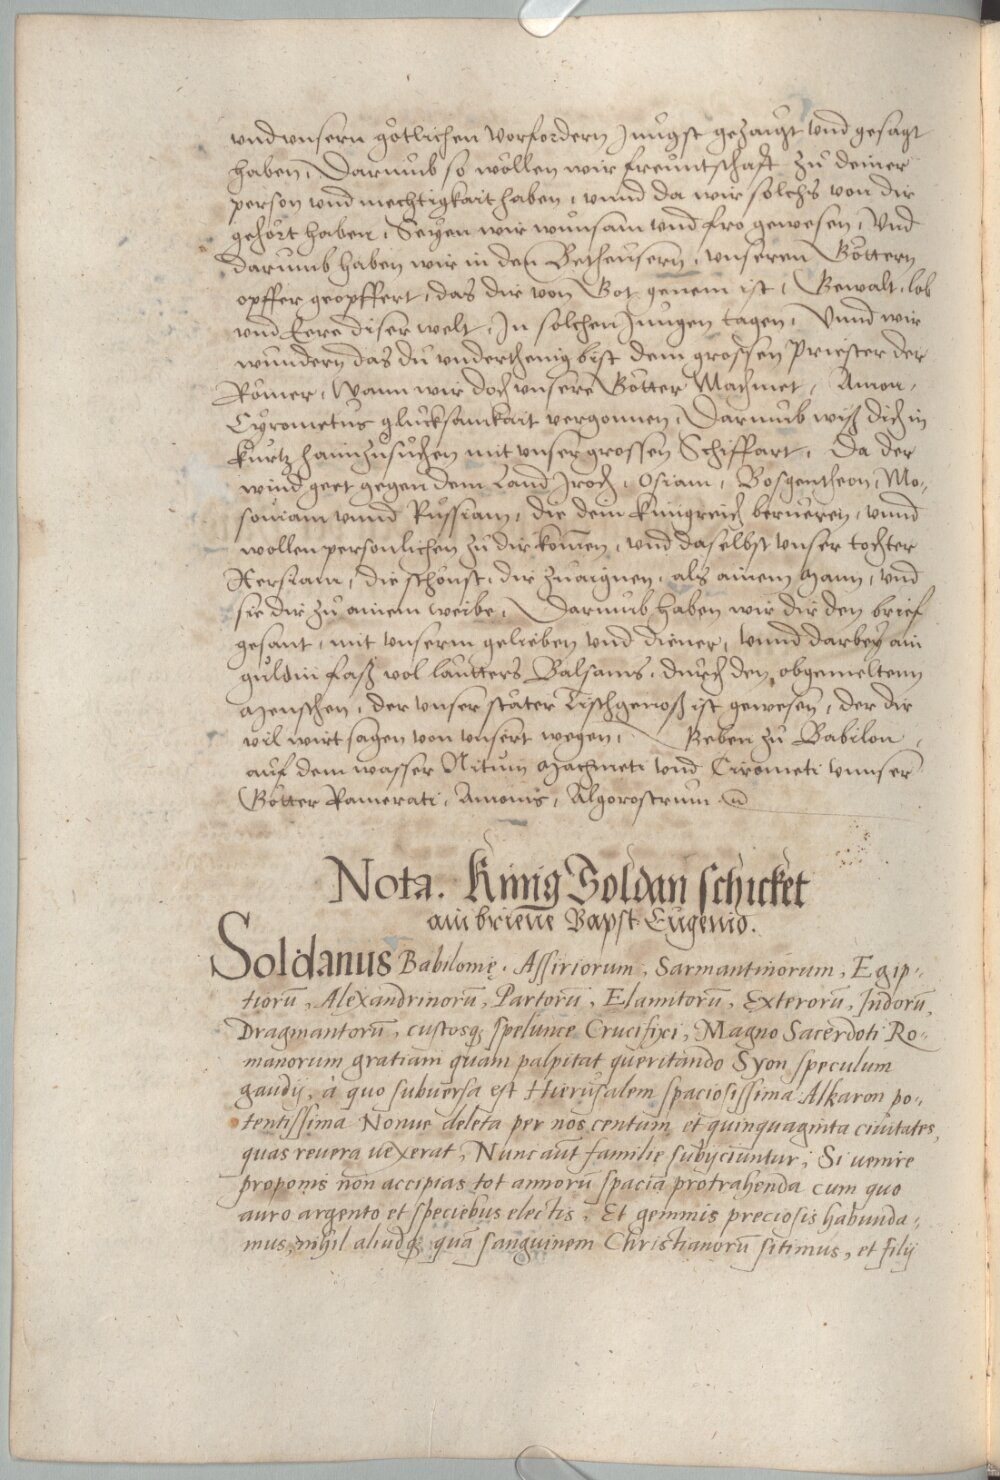 vnd vnsern götlichen Vorfordern Jungst gezaigt vnd gesagt
haben, Darumb so wöllen wir freuntschafft zu deiner
person vnd mechtigkait haben, vnnd da wir solchs von dir
gehört haben, Seyen wir wunsam vnd fro gewesen, Vnd
darumb haben wir in den Betheusern, vnseren Göttern
opffer geopffert, das dir von Got genem ist, Gewalt, lob
vnd Eere diser welt, In solchen Jungen tagen, Vnnd wir
wundern das du vnderthenig bist dem grossen Priester der
Römer, Wann wir doch vnsere Götter Machmet, Amon,
Cyrometus glucksamkait vergonnen, Darumb wiß dich in
kurtz haimzusuchen mit vnser grossen Schiffart, Da der
wind geet gegen dem Land Jroch, Osiam, Bosgentheon, Mo-,
soniam vnnd Russiam, die dein kungreich berueren, vnnd
wollen personlichen zu dir komen, vnd daselbst vnser tochter
Kersiam, die schönst, dir zuaignen, als ainem Mann, vnd
sie dir zu ainem weibe, Darumb haben wir dir den brief
gesant, mit vnserm gelieben vnd diener, vnnd darbey ain
guldin faß vol lautters Balsams, durch den obgemeltenn
Menschen, der vnser stäter Tischgenoß ist gewesen, der dir
vil wirt sagen von vnsert wegen, Geben zu Babilon,
auf dem wasser Nitum Machmeti vnd Cirometi vnnser
Götter Ramerati, Amonis, Algorostrum.
Nota. König Soldan schicket
ain brieue Bapst Eugenio.
Soldanus Babilonię, Assiriorum, Sarmantinorum, Egip-,
tiorū, Alexandrinorū, Partorū, Elamitorū, Exterorū, Indorū,
Dragmantorū, custosq; spelunce Crucifixi, Magno Sacerdoti Ro-
manorum gratiam quam palpitat queritando Syon speculum
gaudij, à quo subuersa est Hierusalem spaciosissima Alkaron po-,
tentissima Nonue deleta per nos centum et quinquaginta ciuitates,
quas reuera vexerat, Nunc aūt familię subijciuntur, Si venire
proponis non accipias tot annorū spacia protrahenda cum quo
auro argento et speciebus electis, Et gemmis preciosis habunda-,
mus, nihil aliudq; quā sanguinem Christianorū sitimus, et filij